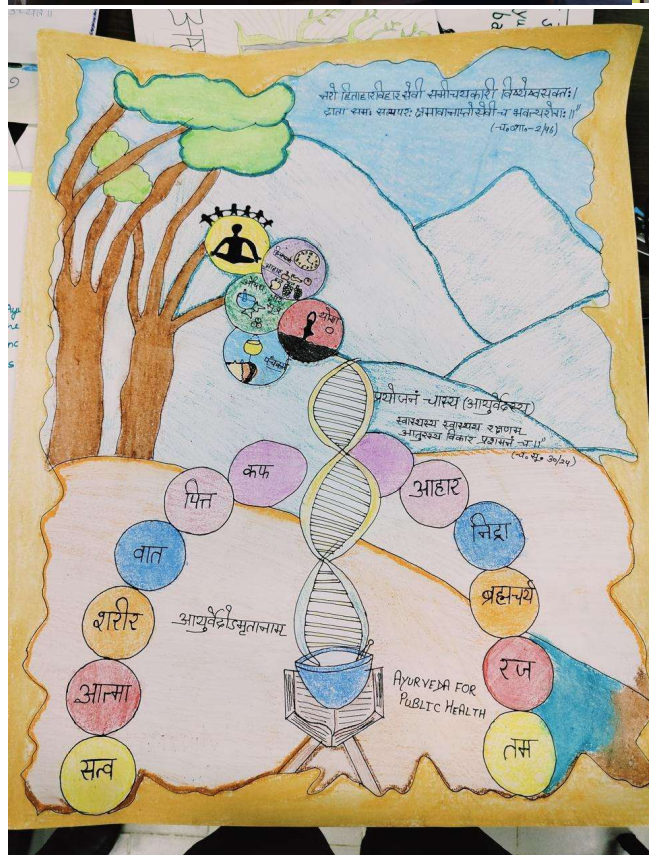 नरो हिताहारविहारसेवी समीक्ष्यकारी विषयेष्वसक्तः।
दाता समः सत्यपरः क्षमावानाप्तोसेवी च भवत्यरोगः॥"
प्रयोजनं चास्य (आयुर्वेदस्य)
स्वास्थस्य स्वास्थय रक्षणम्
आतुरस्य विकार प्रशमनं च॥"
(च॰ सू॰ 30/24)
योगा
कफ
पित्त
वात
शरीर
आत्मा
सत्व
आहार
निद्रा
ब्रह्मचर्य
रज
तम
आयुर्वेदोऽमृतानाम्
AYURVEDA FOR
PUBLIC HEALTH